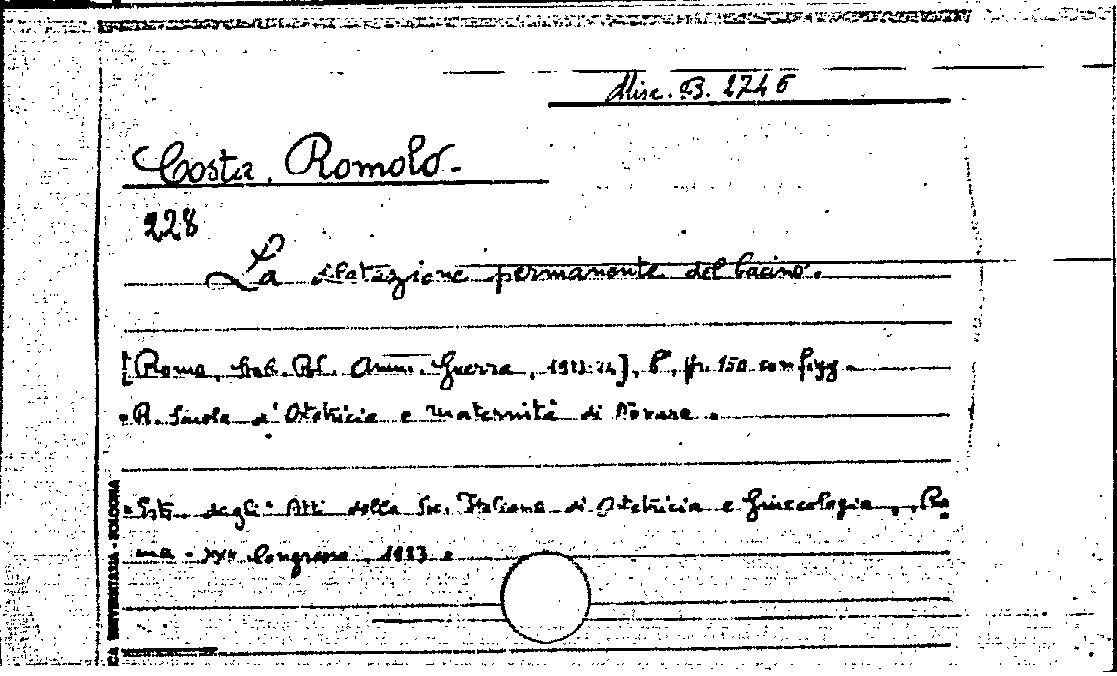 Misc. B. 2746
Costa, Romolo.
228
La dilatazione permanente del bacino.
[Roma, Stab. Pol. Amm. Guerra, 1923-24], 8°, pp. 150 con figg.
"R. Scuola d'Ostetricia e Maternità di Novara".
"Estr. dagli "Atti della Soc. Italiana di Ostetricia e Ginecologia", Ro
ma - Congresso, 1923"
UNIVERSITARIA - BOLOGNA